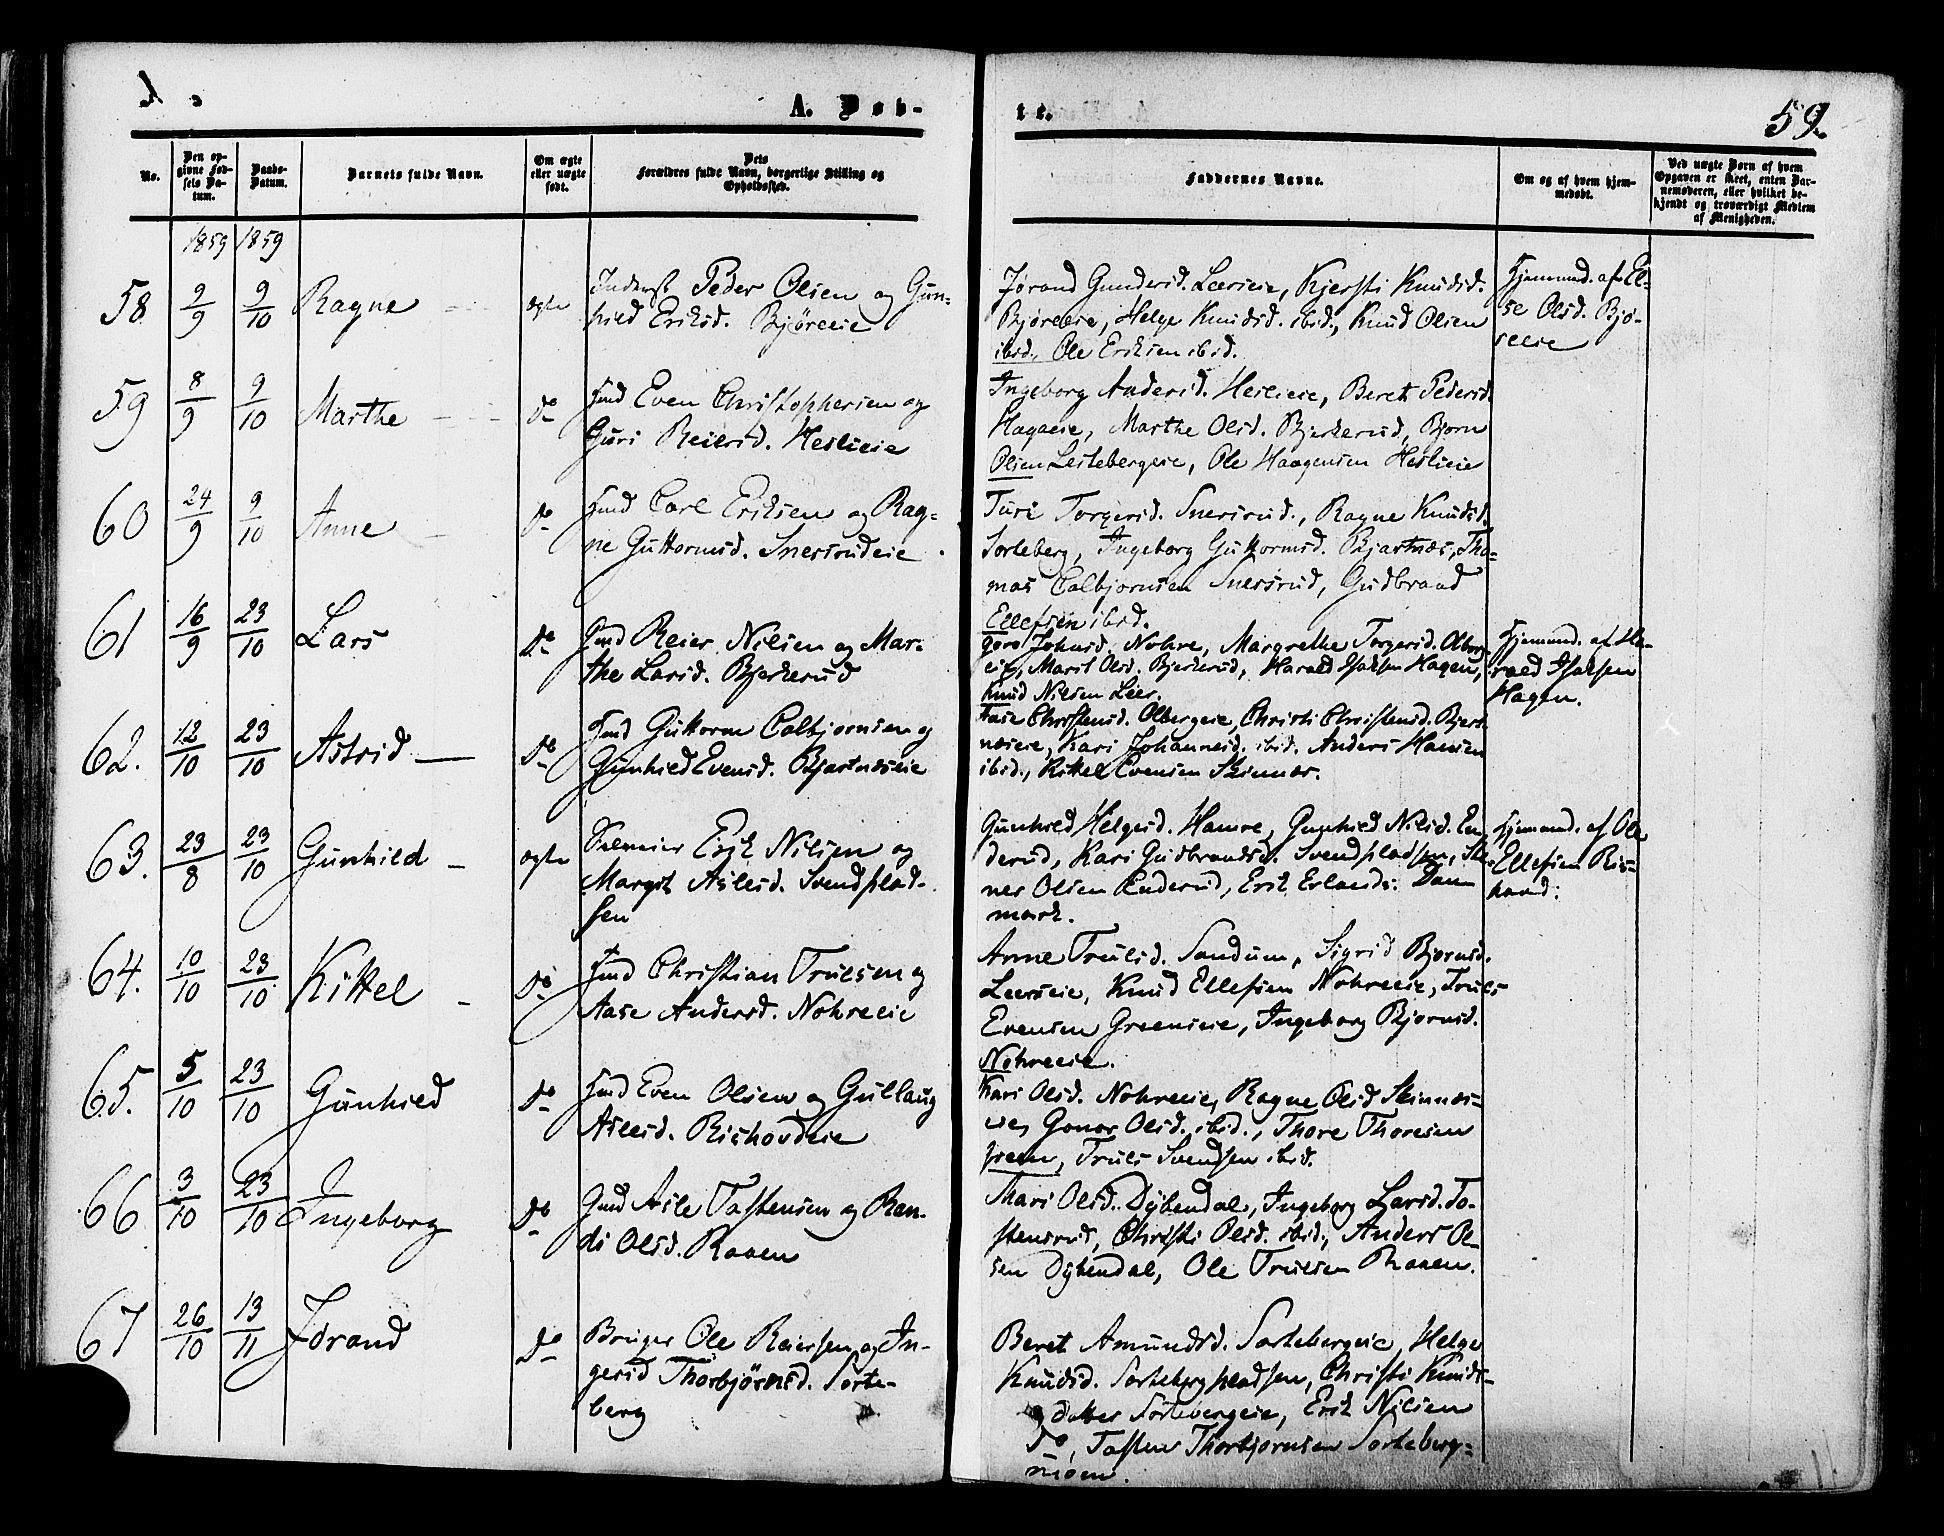 A. Døb-
te.
59.
No.
Den op-
givne Fød-
sels Da-
tum.
Daabs-
Datum.
Barnets fulde Navn.
Om ægte
eller uægte
født.
Dets
Forældres fulde Navn, borgerlige Stilling og
Opholdssted.
Faddernes Navne.
Om og af hvem hjem-
medøbt.
Ved uægte Børn af hvem
Opgaven er skeet, enten Bar-
nemoderen, eller hvilket be-
kjendt og troværdigt Medlem
af Menigheden.
1859 1859
58 9/9 9/10 Ragne ægte
Inderst Peder Olsen og Gun-
hild Eriksd. Bjøreeie
Jørand Gundersd. Leerseie, Kjersti Knudsd.
Bjøreeie, Helge Knudsd. ibid., Knud Olsen
ibid., Ole Eriksen ibid.
Hjemmed. af El-
se Olsd. Bjø-
reeie
59 8/9 9/10 Marthe Do
Hmd Even Christophersen og
Guri Reiersd. Heslieie
Ingeborg Andersd. Heslieie, Beret Pedersd.
Hagaeie, Marthe Olsd. Bjerkerud, Bjørn
Olsen Lestebergeie, Ole Haagensen Heslieie
60 24/9 9/10 Anne Do
Hmd Carl Eriksen og Rag-
ne Guttormsd. Snersrudeie
Turi Torgersd. Snersrud., Ragne Knudsd.
Sorteberg, Ingeborg Guttormsd. Bjartnæs, Tho-
mas Colbjornsen Snersrud, Gudbrand
Ellefsen ibid.
61 16/9 23/10 Lars Do
Gmd Reier Nilsen og Mar-
the Larsd. Bjerkerud
Gøro Johnsd. Nohre, Margrethe Torgersd. Olberg-
eie, Marit Olsd. Bjerkerud, Harald Isaksen Hagen,
Knud Nilsen Leer.
Hjemmed. af Ha-
rald Isaksen
Hagen.
62. 12/10 23/10 Astrid Do
Hmd Guttorm Colbjornsen og
Gunhild Evensd. Bjartnæseie
Aase Christensd. Olbergeie, Christi Christensd. Bjert-
næseie, Kari Johannesd. ibid. Anders Hansen
ibid., Kittel Evensen Skinnæs.
63. 23/8 23/10 Gunhild ægte
Selveier Erik Nilsen og
Margit Aslesd. Svendsplad-
sen
Gunhild Helgesd. Hamre, Gunhild Nilsd. En-
derud, Kari Gudbrandsd. Svendspladsen, Ste-
ner Olsen Enderud, Erik Erlands: Dan
mark.
Hjemmed. af Ole
Ellefsen Ris-
hovd:
64. 10/10 23/10 Kittel Do
Hmd Christian Trulsen og
Aase Andersd. Nohreeie
Anne Trulsd. Sandum, Sigrid Bjørnsd.
Leerseie, Knud Ellefsen Nohreeie, Truls
Evensen Greenseie, Ingeborg Bjornsd.
Nohreeie.
65. 5/10 23/10 Gunhild Do
Hmd Even Olsen og Gullaug
Aslesd. Rishovdeie
Kari Olsd. Nohreeie, Ragne Olsd Skinnæs-
eie, Gonor Olsd. ibid., Thore Thoresen
Green, Truls Svendsen ibid.
66 3/10 23/10 Ingeborg Do
Gmd Asle Tostensen og Ran-
di Olsd. Raaen
Thari Olsd. Dybendal, Ingeborg Larsd. To-
stensrud, Christi Olsd. ibid., Anders Ol-
sen Dybendal, Ole Trulsen Raaen.
67 26/10 13/11 Jørand Do
Bruger Ole Reiersen og In-
gerid Thorbjørnsd. Sorte-
berg
Beret Amundsd. Sortebergeie, Helge
Knudsd. Sortebergpladsen, Christi Knuds-
datter Sortebergeie, Erik Nilsen
Do, Tosten Thorbjornsen Sorteberg-
moen.